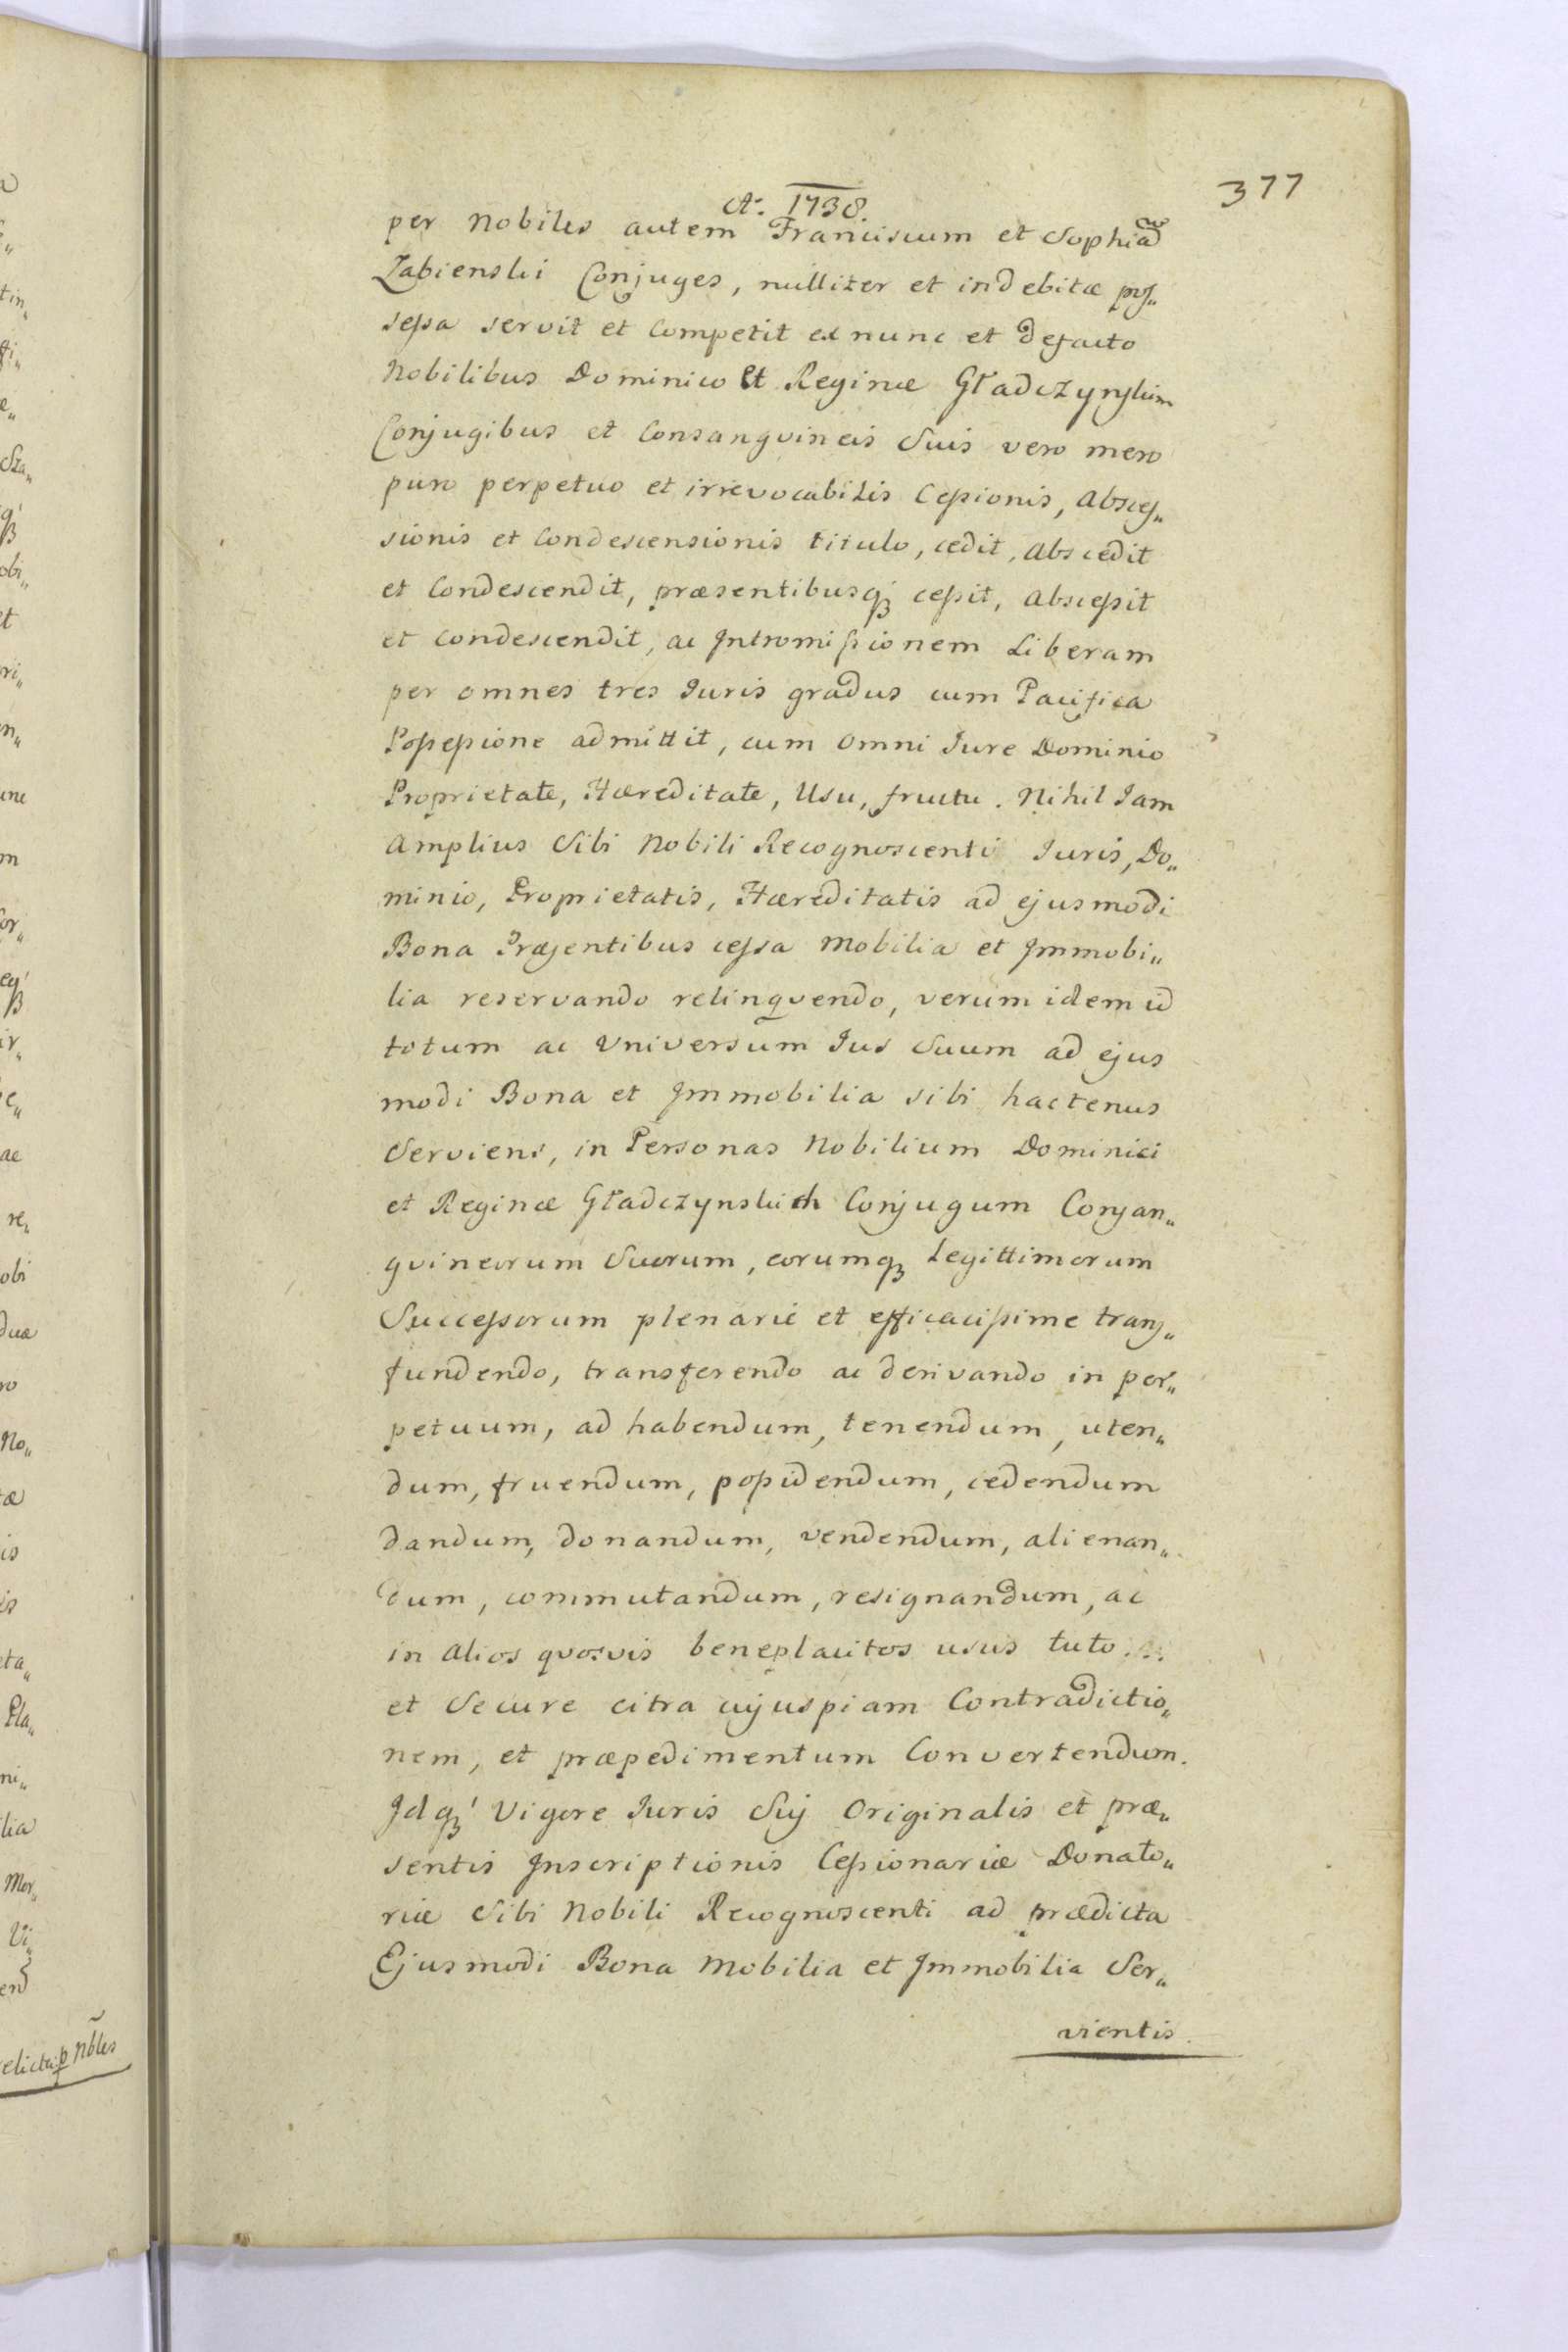 A: 1738.
377
per Nobiles autem Franciscum et Sophiã
Zabienski Conjuges, nulliter et indebitæ pos„
sessa servit et Competit ex nunc et defacto
Nobilibus Dominico et Reginæ Gładczynskim
Conjugibus et Consangvineis Suis vero mero
puro perpetuo et irrevocabilis Cessionis, absces„
sionis et Condescensionis titulo, cedit, abscedit
et Condescendit, præsentibusq; cessit, abscessit
et condescendit, ac Intromissionem Liberam
per omnes tres Iuris gradus cum Pacifica
Possessione admittit, cum omni Iure Dominio
Proprietate, Hæreditate, Usu, fructu. Nihil Iam
amplius Sibi Nobili Recognoscenti Iuris, Do„
minio, Proprietatis, Hæreditatis ad ejusmodi
Bona Præsentibus cessa Mobilia et Immobi„
lia reservando relinqvendo, verum idem id
totum ac Universum Ius Suum ad ejus
modi Bona et Immobilia sibi hactenus
Serviens, in Personas Nobilium Dominici
et Reginæ Gładczynskich Conjugum Consan„
gvineorum Suorum, eorumq; Legittimorum
Successorum plenarie et efficacissime trans„
fundendo, transferendo ac derivando in per„
petuum, ad habendum, tenendum, uten„
dum, fruendum, possidendum, cedendum
dandum, donandum, vendendum, alienan„
dum, commutandum, resignandum, ac
in alios quosvis beneplacitos usus tuto
et Secure citra cujuspiam Contradictio„
nem, et præpedimentum Convertendum.
Idq; Vigore Iuris Sui Originalis et præ„
sentis Inscriptionis Cessionariæ Donato„
riæ Sibi Nobili Recognoscenti ad prædicta
Ejusmodi Bona Mobilia et Immobilia Ser„
vientis.